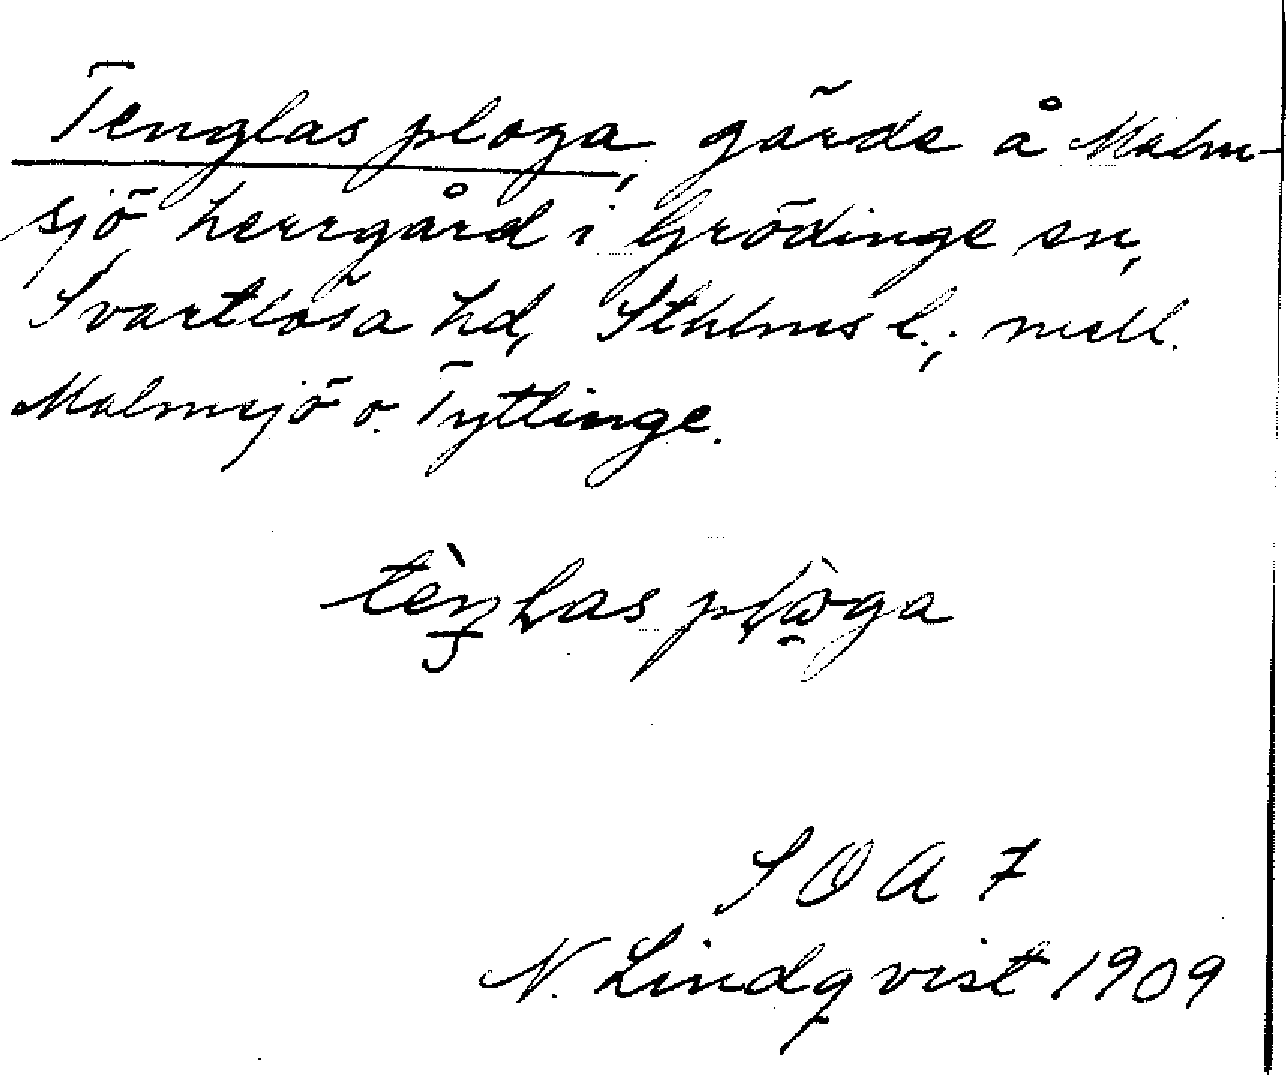 Tenglas ploga, gärde å Malm-
sjö herrgård i Grödinge sn,
Svartlösa hd, Sthlms l.; mell.
Malmsjö o. Tytlinge.
S O A 7
N. Lindqvist 1909